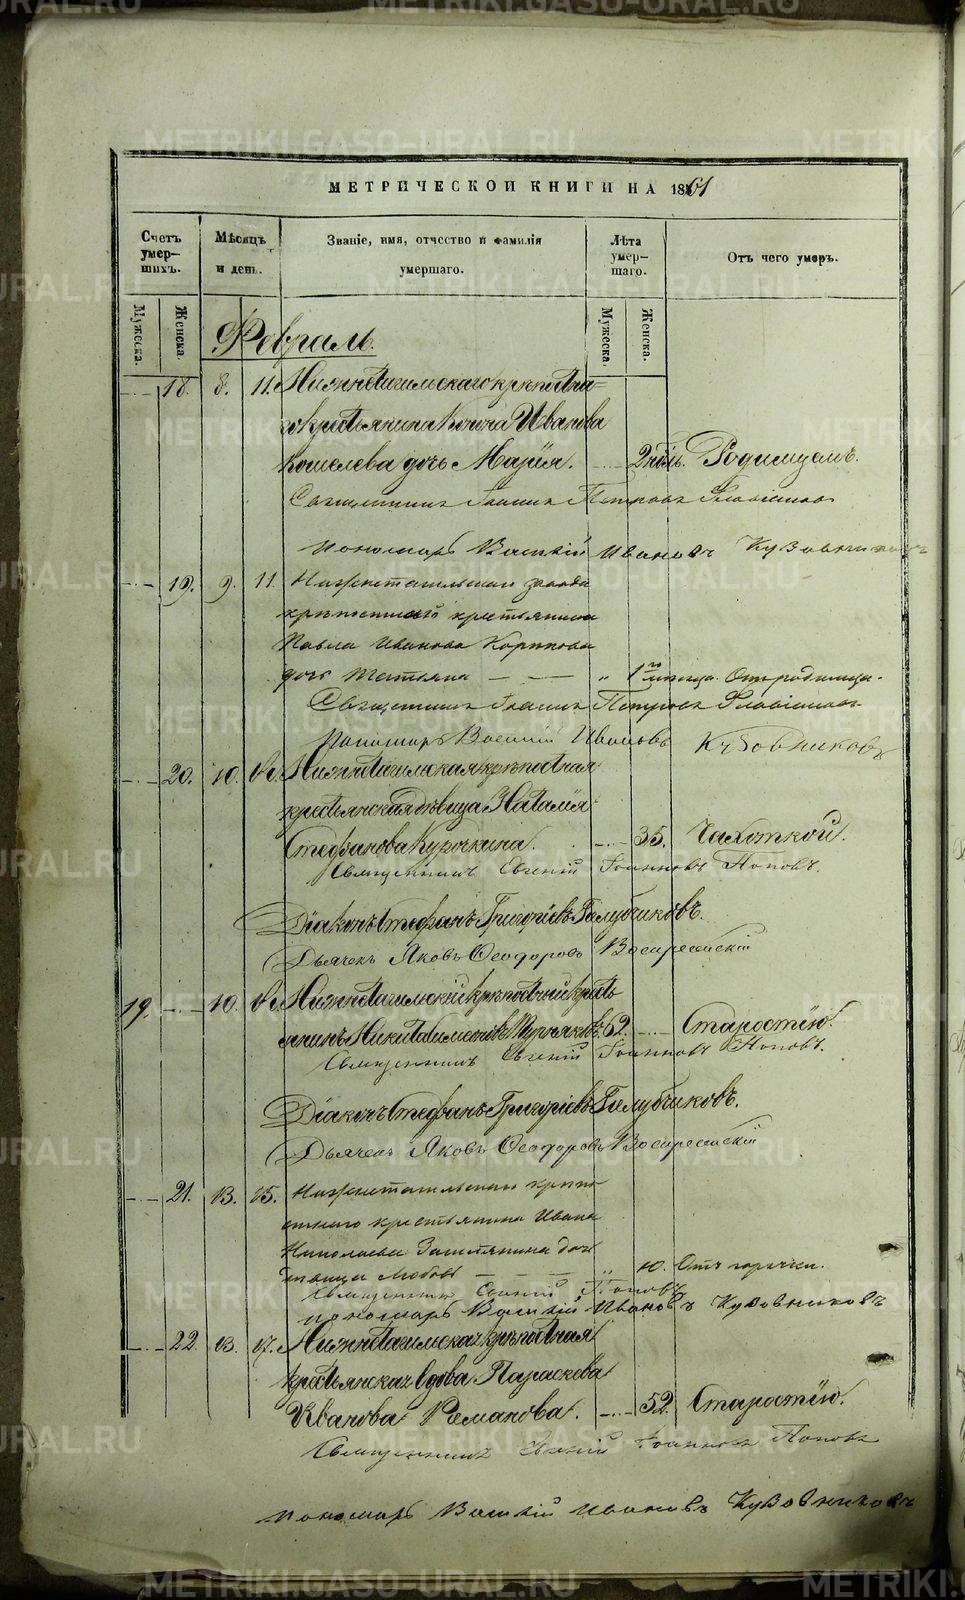 METRIKI.GASO-URAL.RU
МЕТРИЧЕСКОЙ КНИГИ НА 1861
Счетъ умер-шихъ.
Мѣсяцъ и день.
Званіе, имя, отчество и фамилія умершаго.
Лѣта умер-шаго.
Отъ чего умеръ.
Мужеска.
Женска.
Мужеска.
Женска.
Февраль.
18. 8. 11. Нижнетагильскаго крѣпостна=
го крестьянина Ивана
Кошелева дочь Марія. 2 нѣд. Родимцемъ.
Священникъ Іоаннъ Петровъ Флавіановъ
Пономарь Василій Ивановъ Кузовниковъ
19. 9. 11. Нижнетагильскаго завода
крѣпостнаго крестьянина
Павла Иванова
дочь Татьяна " 1го мѣсяца. Отъ родимца.
Священникъ Іоаннъ Петровъ Флавіановъ
Пономарь Василій Ивановъ Кузовниковъ
20. 10. Нижнетагильская крѣпостная
крестьянская дѣвица Наталія
Стефанова Курочкина. 35. Чахоткой.
Священникъ Евгеній Іоанновъ Поповъ.
Діаконъ Стефанъ Григорьевъ Голубчиковъ.
Дьячекъ Яковъ Ѳеодоровъ Воскресенскій
19. 10. Нижнетагильскій крѣпостный кресть
янинъ Никита 62. Старостію.
Священникъ Евгеній Іоанновъ Поповъ.
Діаконъ Стефанъ Григорьевъ Голубчиковъ.
Дьячекъ Яковъ Ѳеодоровъ Воскресенскій
21. 13. 15. Нижнетагильскаго крѣпо
стнаго крестьянина Ивана
Николаева дочь
дѣвица Любовь " 10. Отъ горячки.
Священникъ Евгеній Поповъ
Пономарь Василій Ивановъ Кузовниковъ
22. 13. 17. Нижнетагильская крѣпостная
крестьянская вдова Параскева
Иванова Романова. 52. Старостію.
Священникъ Евгеній Іоанновъ Поповъ
Пономарь Василій Ивановъ Кузовниковъ